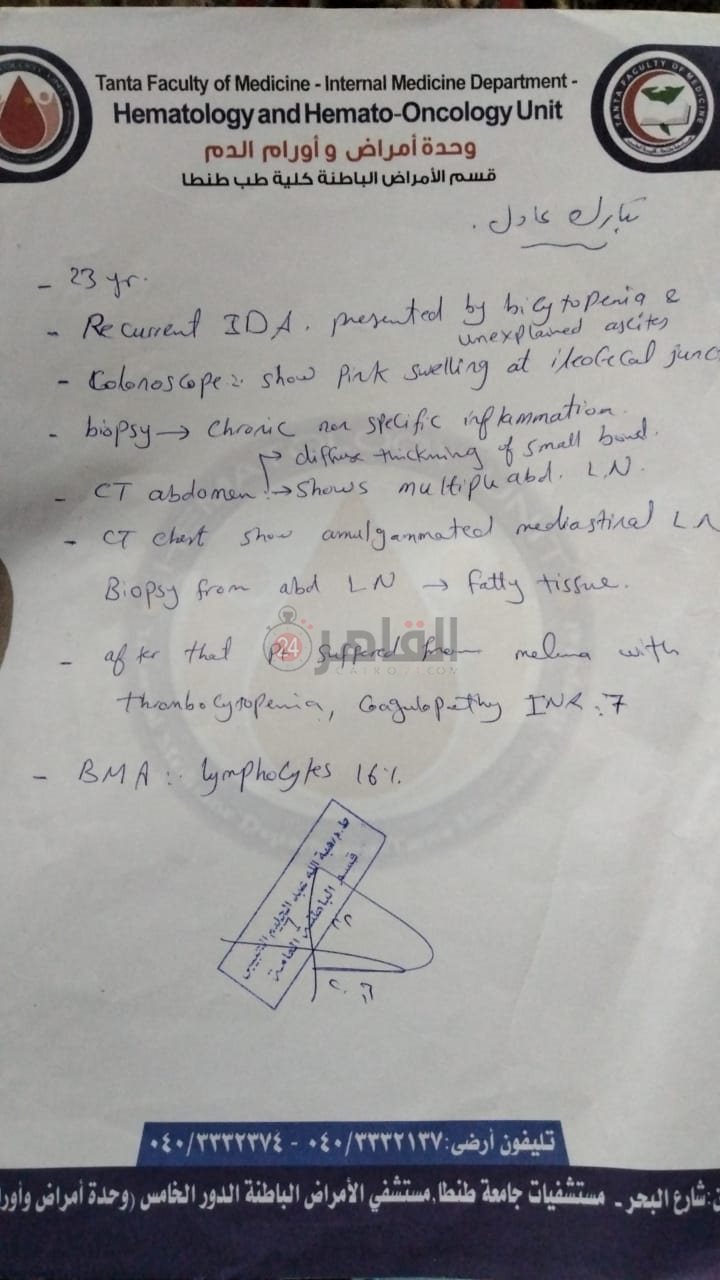 Tanta Faculty of Medicine - Internal Medicine Department -
Hematology and Hemato-Oncology Unit
وحدة أمراض و أورام الدم
قسم الأمراض الباطنة كلية طب طنطا
TANTA FACULTY OF MEDICINE
تبارك عادل .
- 23 yr.
- Recurrent IDA. presented by bicytopenia &
unexplained ascites
- Colonoscope :. show Pink swelling at ileocecal junc
- biopsy → chronic non specific inflammation.
→ diffuse thickning of small bowel.
- CT abdomen :→ shows multiple abd. L.N.
- CT chest show amulgammated mediastinal LN
Biopsy from abd LN → fatty tissue.
- after that Pt suffered from melena with
thrombocytopenia, Coagulopathy INR : 7
- BMA :. lymphocytes 16 %.
القاهرة 24
CAIRO24.COM
قسم الباطنة العامة
تليفون أرضى: ٠٤٠/٣٣٣٢١٣٧ - ٠٤٠/٣٣٣٢٣٧٤
ن: شارع البحر - مستشفيات جامعة طنطا, مستشفي الأمراض الباطنة الدور الخامس (وحدة أمراض وأورا